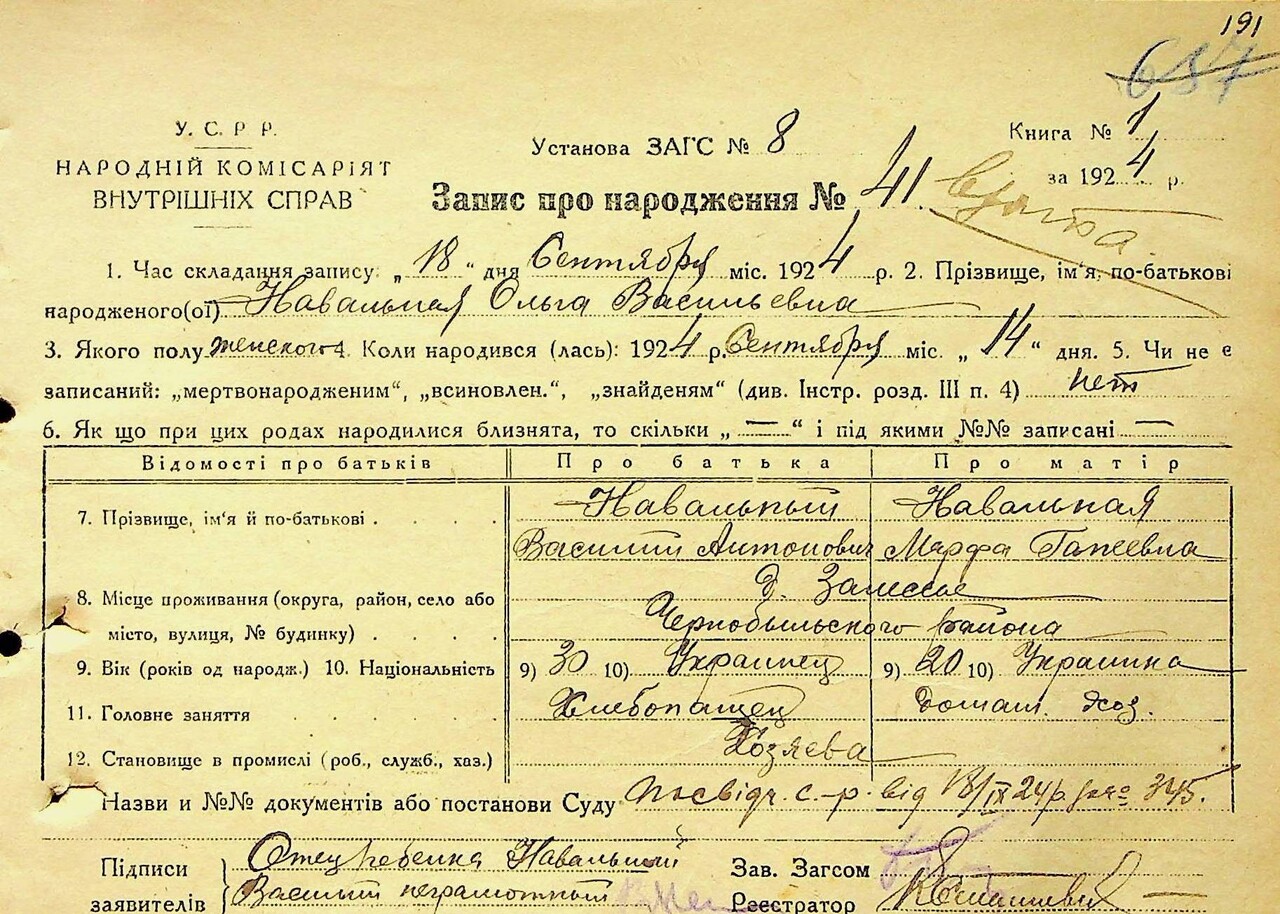 191
687
У. С. Р Р.
НАРОДНІЙ КОМІСАРІЯТ
ВНУТРІШНІХ СПРАВ
Установа ЗАГС № 8
Книга № 1
за 1924 р.
Запис про народження № 41
1. Час складання запису: „18“ дня Сентября міс. 1924 р. 2. Прізвище, ім'я, по-батькові
народженого(ої) Навальная Ольга Васильевна
3. Якого полу женского 4. Коли народився (лась): 1924 р. Сентября міс. „14“ дня. 5. Чи не є
записаний: „мертвонародженим“, „всиновлен.“, „знайденям“ (див. Інстр. розд. III п. 4) нет
6. Як що при цих родах народилися близнята, то скільки „—“ і під якими №№ записані —
Відомості про батьків Про батька Про матір
7. Прізвище, ім'я й по-батькові . . . . Навальный Навальная
Василий Антонович Марфа
8. Місце проживання (округа, район, село або д. Залесье
місто, вулиця, № будинку) . . . . Чернобыльского района
9. Вік (років од народж.) 10. Національність 9) 30 10) Украинец 9) 20 10) Украинка
11. Головне заняття . . . . . Хлебопашец Домаш. хоз.
12. Становище в промислі (роб., служб., хаз.) Хозяева
Назви и №№ документів або постанови Суду Посвідч. с.-р. від 18/IX 24 р. 345.
Підписи Отец ребенка Навальный Зав. Загсом
заявителів Василий неграмотный Реєстратор